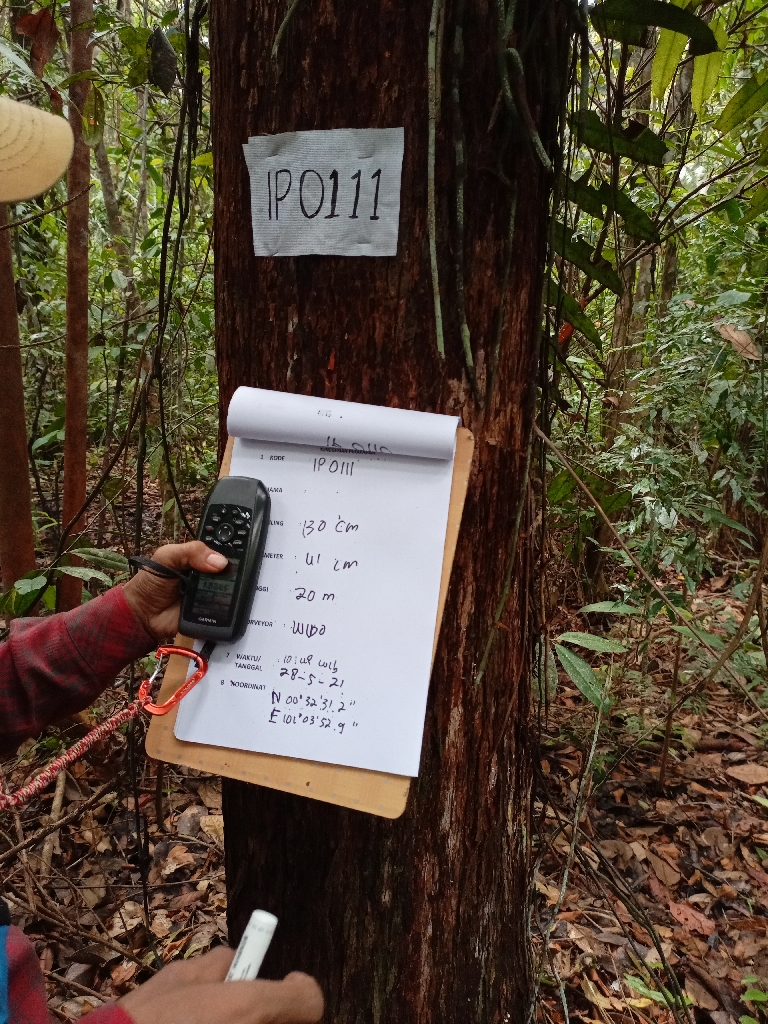 IP0111
2 KODE : IP0111
AMA :
LING : 130 cm
METER : 41 cm
GGI : 20 m
RVEYOR : WIDO
7 WAKTU/ TANGGAL : 10:48 WIB
28-5-21
8 KOORDINAT
N 00°32'31.2"
E 101°03'52.9"
GARMIN